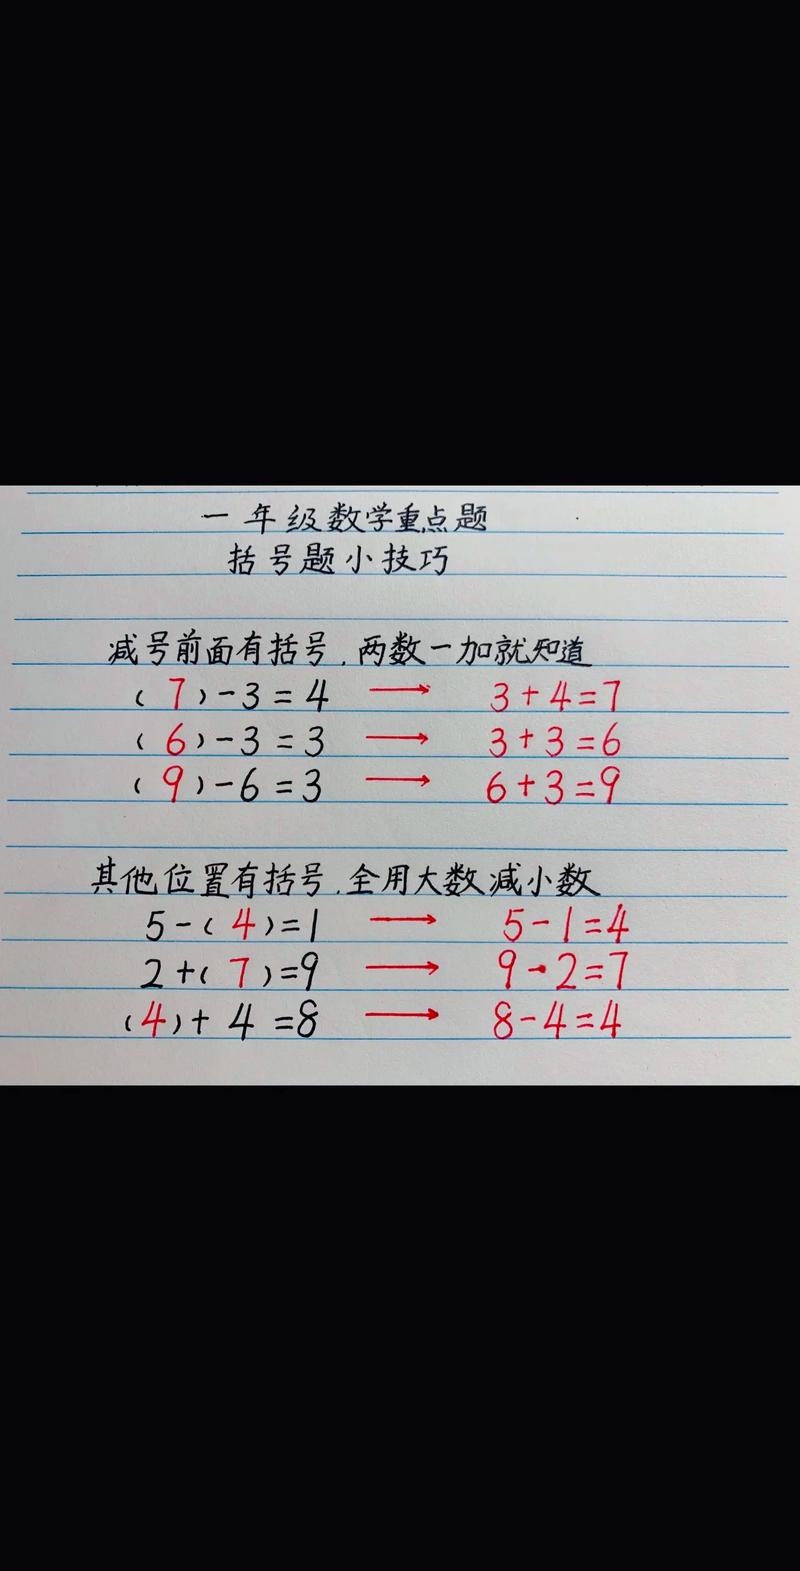 一年级数学重点题
括号题小技巧
减号前面有括号,两数一加就知道
(7)-3=4 → 3+4=7
(6)-3=3 → 3+3=6
(9)-6=3 → 6+3=9
其他位置有括号,全用大数减小数
5-(4)=1 → 5-1=4
2+(7)=9 → 9-2=7
(4)+4=8 → 8-4=4